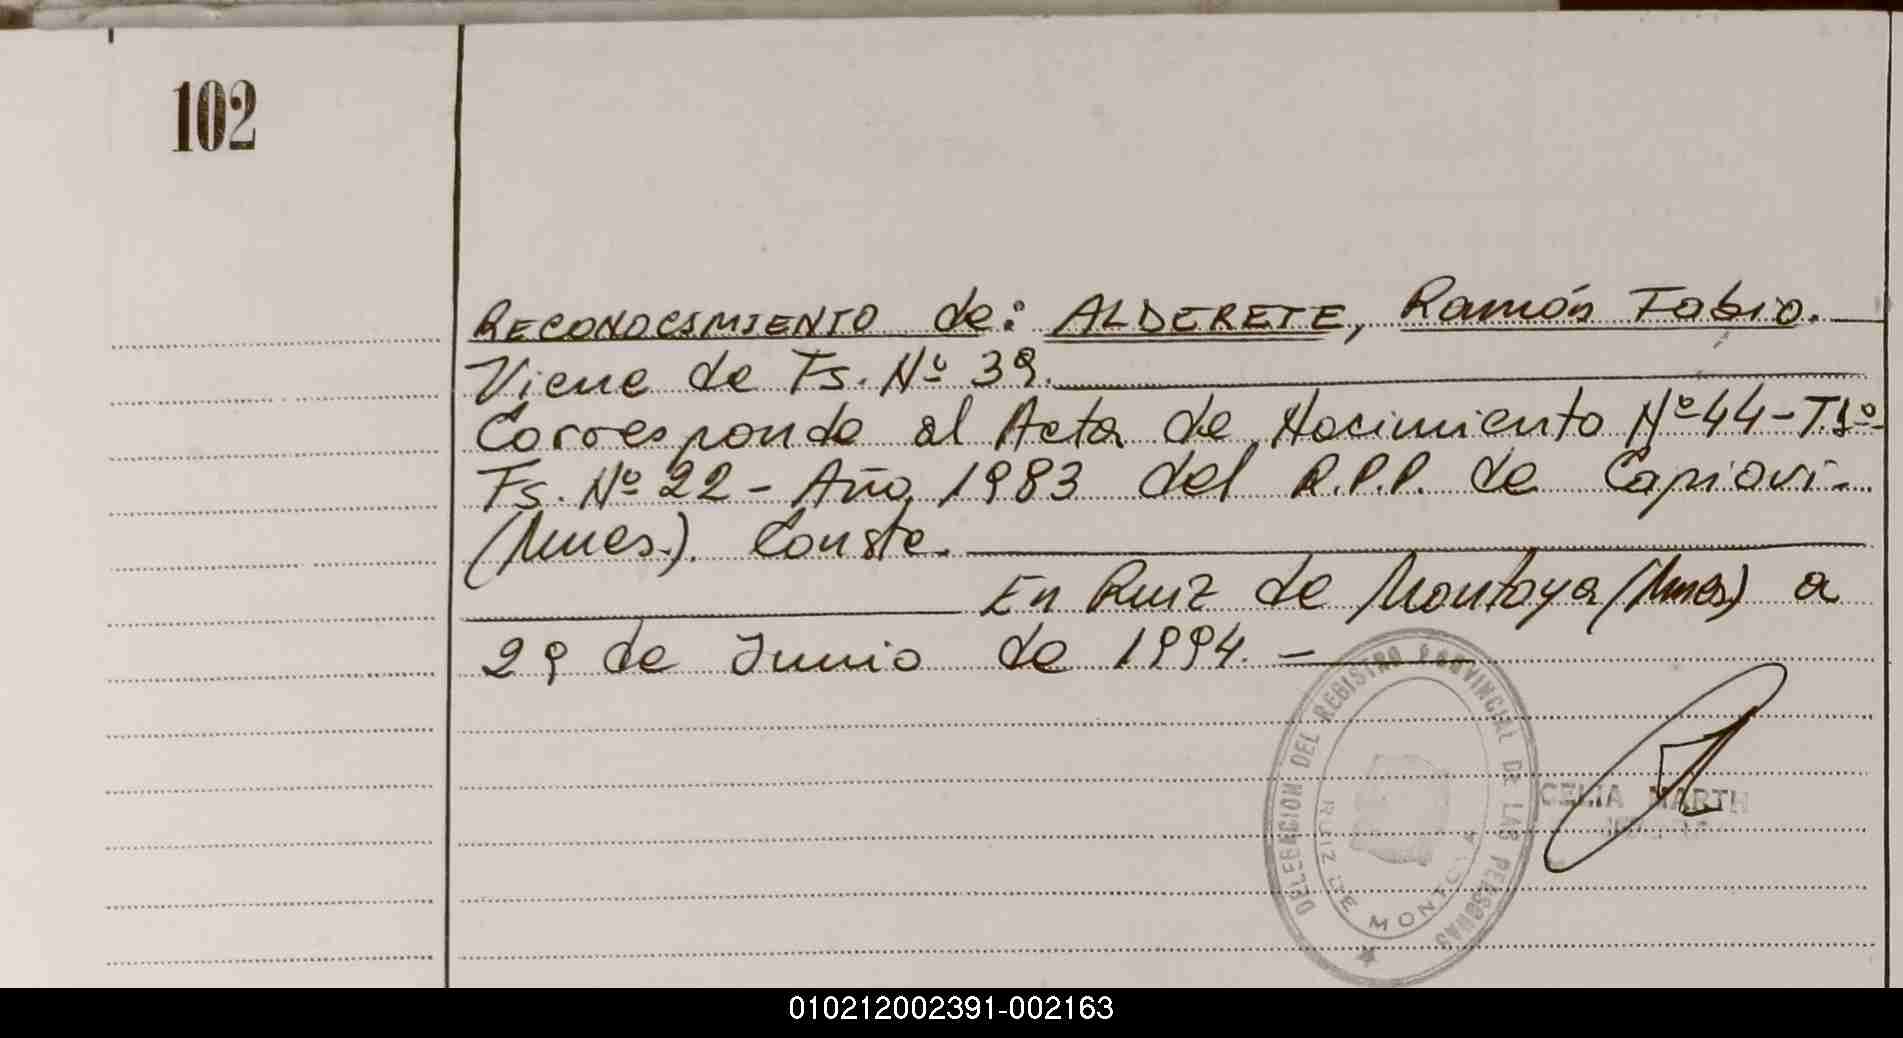 102
RECONOCIMIENTO de: ALDERETE, Ramón Fabio.
Viene de Fs. Nº 39.
Corresponde al Acta de Nacimiento Nº 44 - T.1º-
Fs. Nº 22 - Año 1983 del R.P.P. de Capiovi -
(Mnes.). Conste.
En Ruiz de Montoya (Mnes) a
29 de Junio de 1994. -
DELEGACION DEL REGISTRO PROVINCIAL DE LAS PERSONAS
RUIZ DE MONTOYA
CELIA MARTH
010212002391-002163